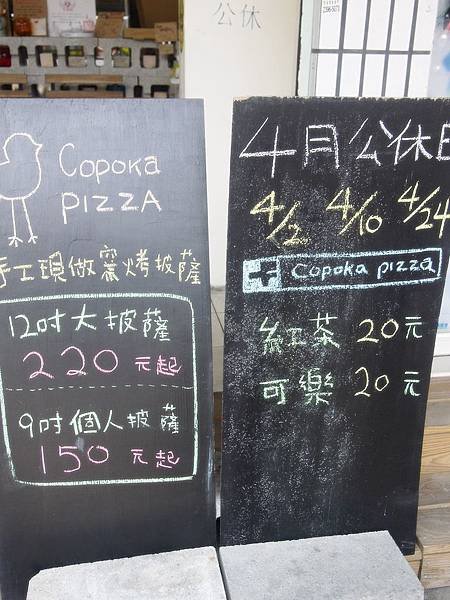 公休
Copoka
PIZZA
手工現做窯烤披薩
12吋大披薩
220元起
9吋個人披薩
150元起
4月公休日
4/2 4/10 4/24
Copoka pizza
紅茶 20元
可樂 20元